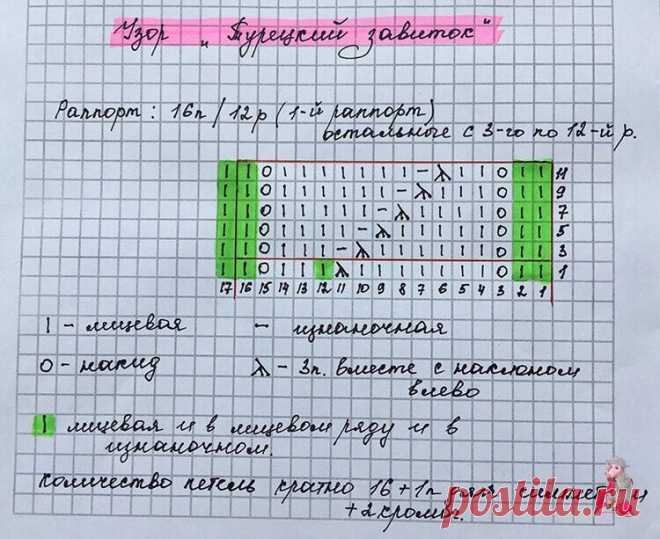 Узор „Турецкий завиток"
Раппорт: 16п/12р (1-й раппорт)
остальные с 3-го по 12-й р.
I I O I I I I I I I – λ I I O I I 11
I I O I I I I I I – λ I I I O I I 9
I I O I I I I I – λ I I I I O I I 7
I I O I I I I – λ I I I I I O I I 5
I I O I I I – λ I I I I I I O I I 3
I I O I I I λ I I I I I I I O I I 1
17 16 15 14 13 12 11 10 9 8 7 6 5 4 3 2 1
I – лицевая – изнаночная
O – накид λ – 3п. вместе с наклоном
влево
I лицевая и в лицевом ряду и в
изнаночном.
Количество петель кратно 16+1п
+2 кромы.
postila.ru